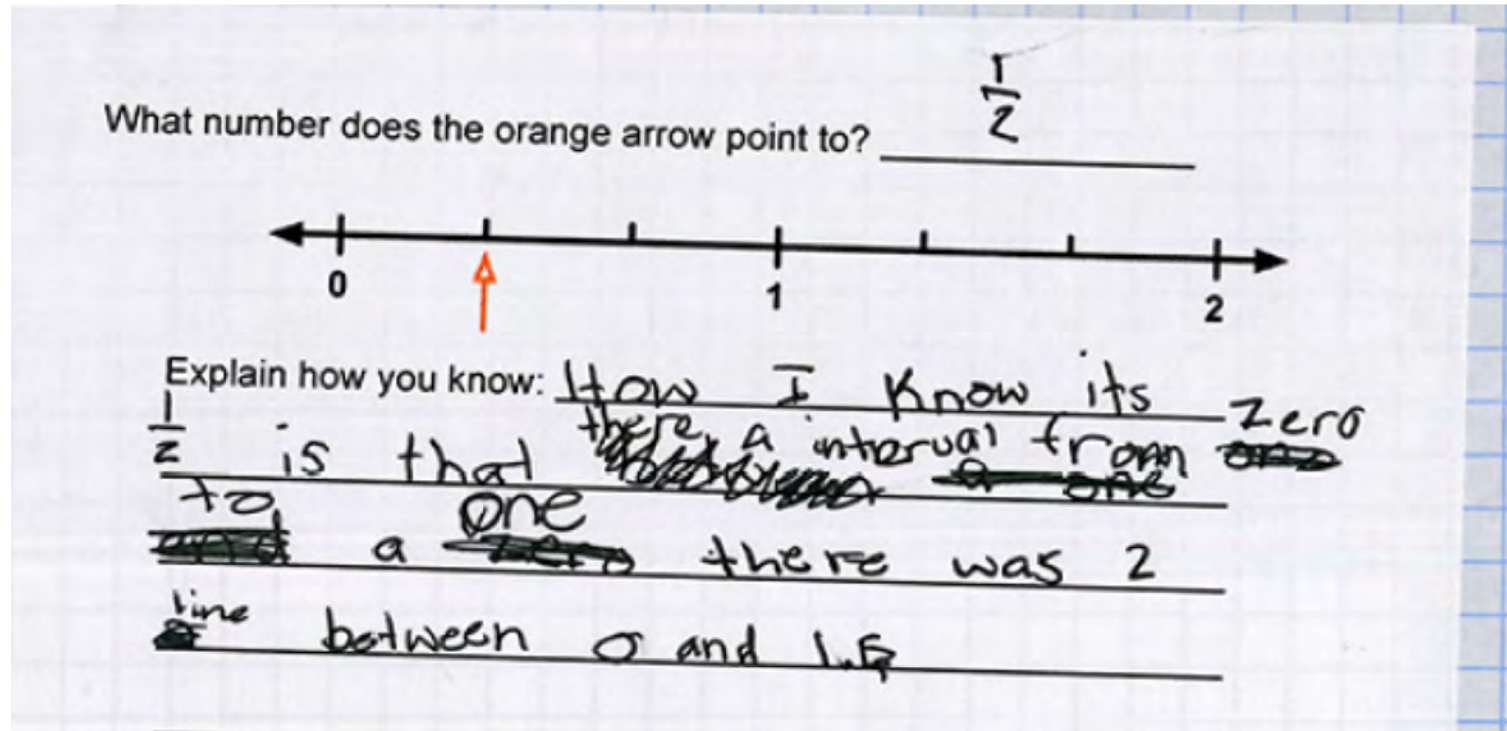 1
2
What number does the orange arrow point to?
0 1 2
Explain how you know: How I know its
1
2 is that there a interval from zero
to a one there was 2
line between 0 and 1.